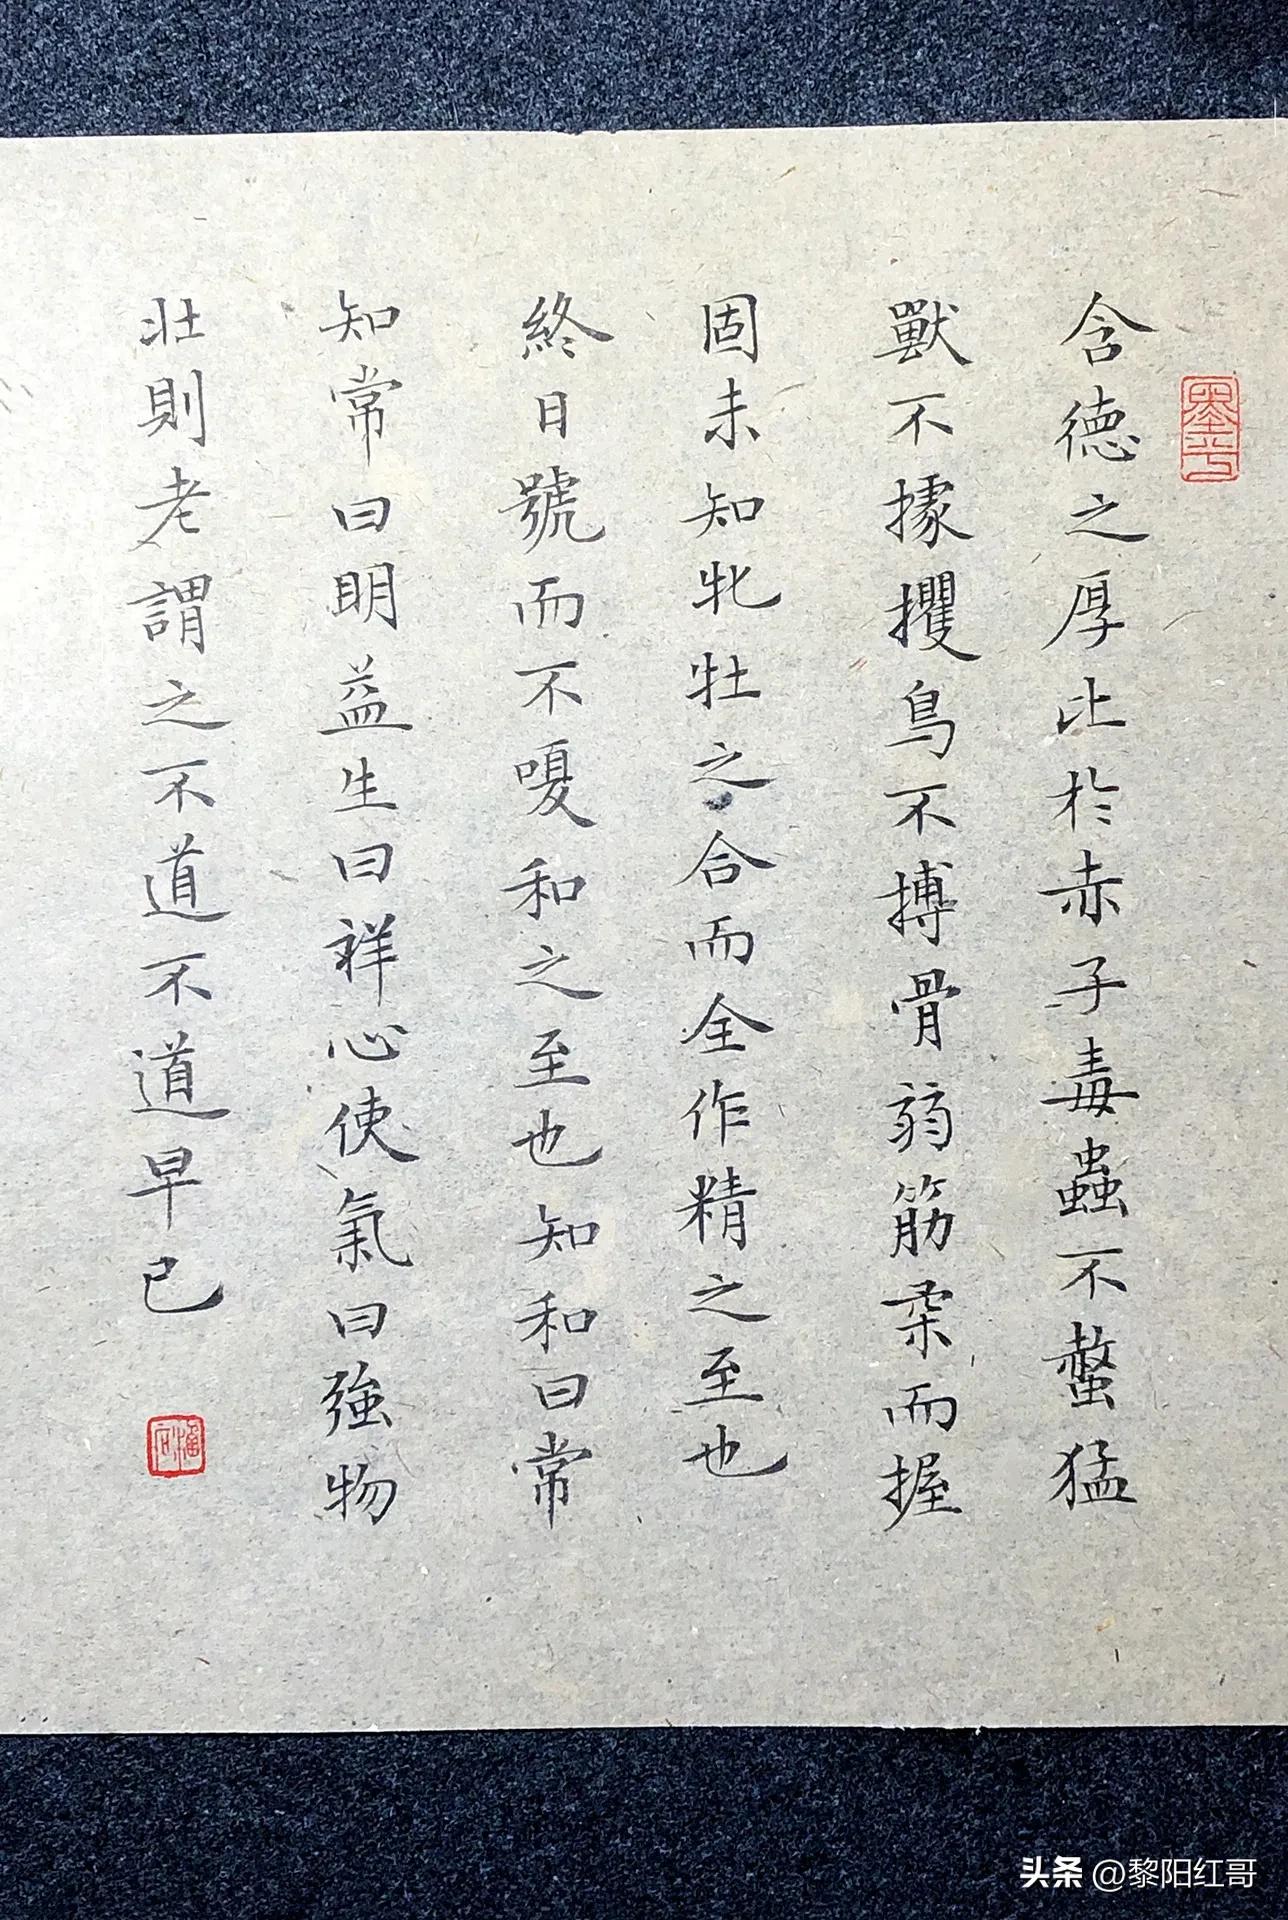 含德之厚比於赤子毒蟲不螫猛
獸不據攫鳥不搏骨弱筋柔而握
固未知牝牡之合而全作精之至也
終日號而不嗄和之至也知和曰常
知常曰明益生曰祥心使氣曰強物
壯則老謂之不道不道早已
头条 @黎阳红哥